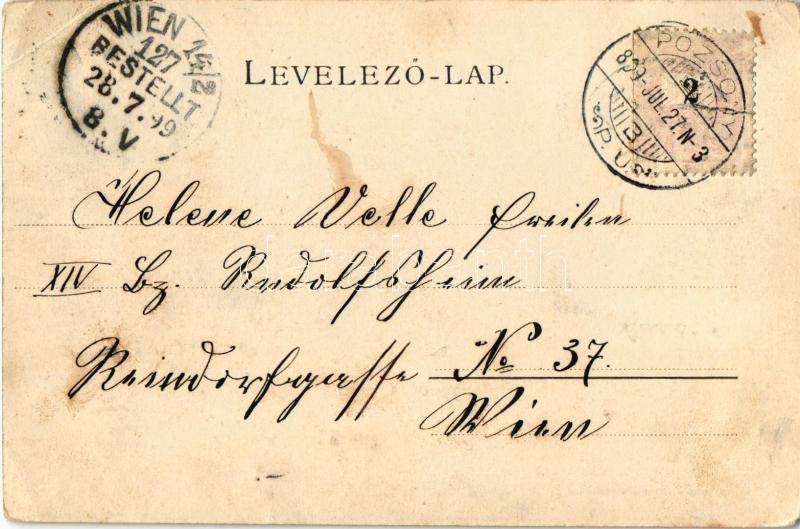 WIEN 14/2
127
BESTELLT
28.7.99
8.V
LEVELEZŐ-LAP.
POZSONY
899 JUL. 27. N-3
2
Helene Velle
XIV Bz. Rudolfsheim
Reindorfgasse No 37.
Wien